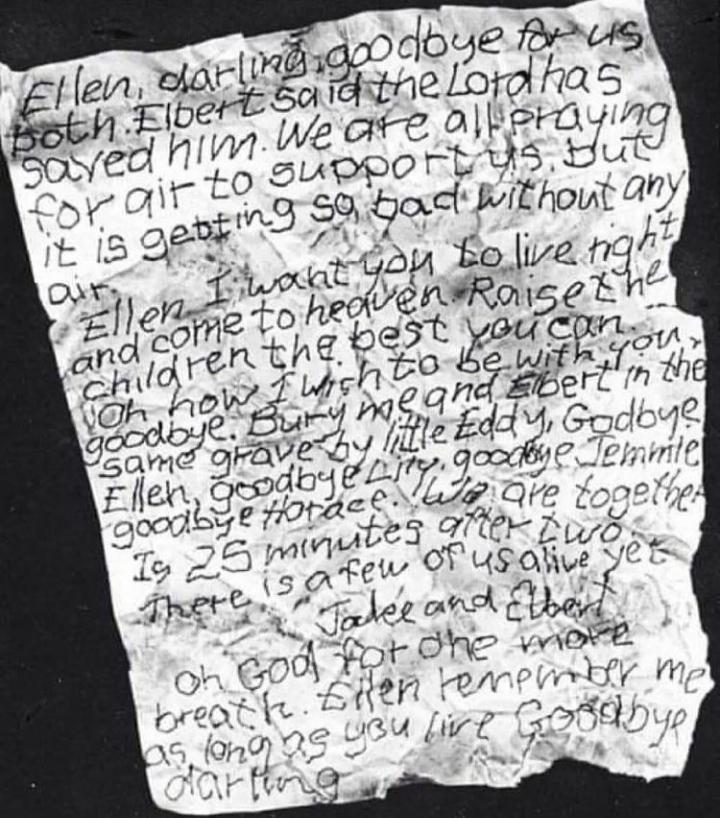 Ellen, darling, goodbye for us
both. Elbert said the Lord has
saved him. We are all praying
for air to support us, but
it is getting so bad without any
air.
Ellen I want you to live right
and come to heaven. Raise the
children the best you can.
Oh how I wish to be with you,
goodbye. Bury me and Elbert in the
same grave by little Eddy, Godbye
Ellen, goodbye Lily, goodbye Jemmie
goodbye Horace. We are together
Is 25 minutes after two.
There is a few of us alive yet
Jake and Elbert
Oh God for one more
breath. Ellen remember me
as long as you live Goodbye
darling